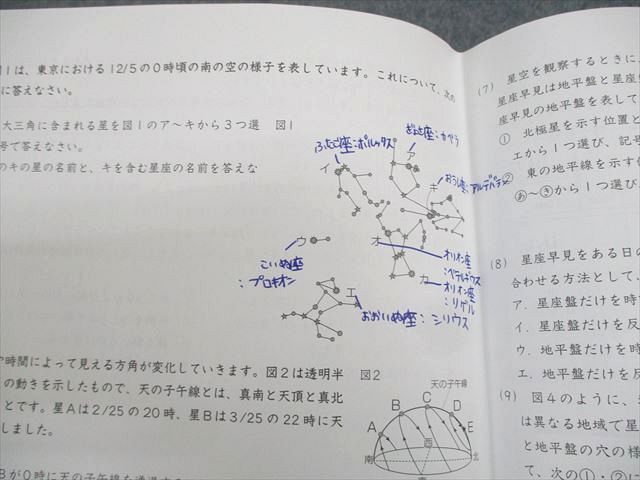 図1は、東京における12/5の0時頃の南の空の様子を表しています。これについて、次の
に答えなさい。
大三角に含まれる星を図1のア〜キから3つ選
号で答えなさい。
のキの星の名前と、キを含む星座の名前を答えな
図1
ふたご座:ポルックス
ぎょしゃ座:カペラ
ア
イ
キ
おうし座:アルデバラン
ウ
オ
こいぬ座
:プロキオン
オリオン座
:ベテルギウス
カ
オリオン座
:リゲル
エ
おおいぬ座:シリウス
時間によって見える方角が変化していきます。図2は透明半
の動きを示したもので、天の子午線とは、真南と天頂と真北
とです。星Aは2/25の20時、星Bは3/25の22時に天
しました。
図2
天の子午線
A
B
C
D
E
南
西
北
Bが0時に天の子午線を通過する
(7) 星空を観察するときに、
星座早見は地平盤と星座
座早見の地平盤を表して
① 北極星を示す位置と
エから1つ選び、記号
② 東の地平線を示す位
あ〜きから1つ選び、
(8) 星座早見をある日の
合わせる方法として、
ア．星座盤だけを時
イ．星座盤だけを反
ウ．地平盤だけを時
エ．地平盤だけを反
(9) 図4のように、
は異なる地域で星
と地平盤の穴の様
て、次の①・②に